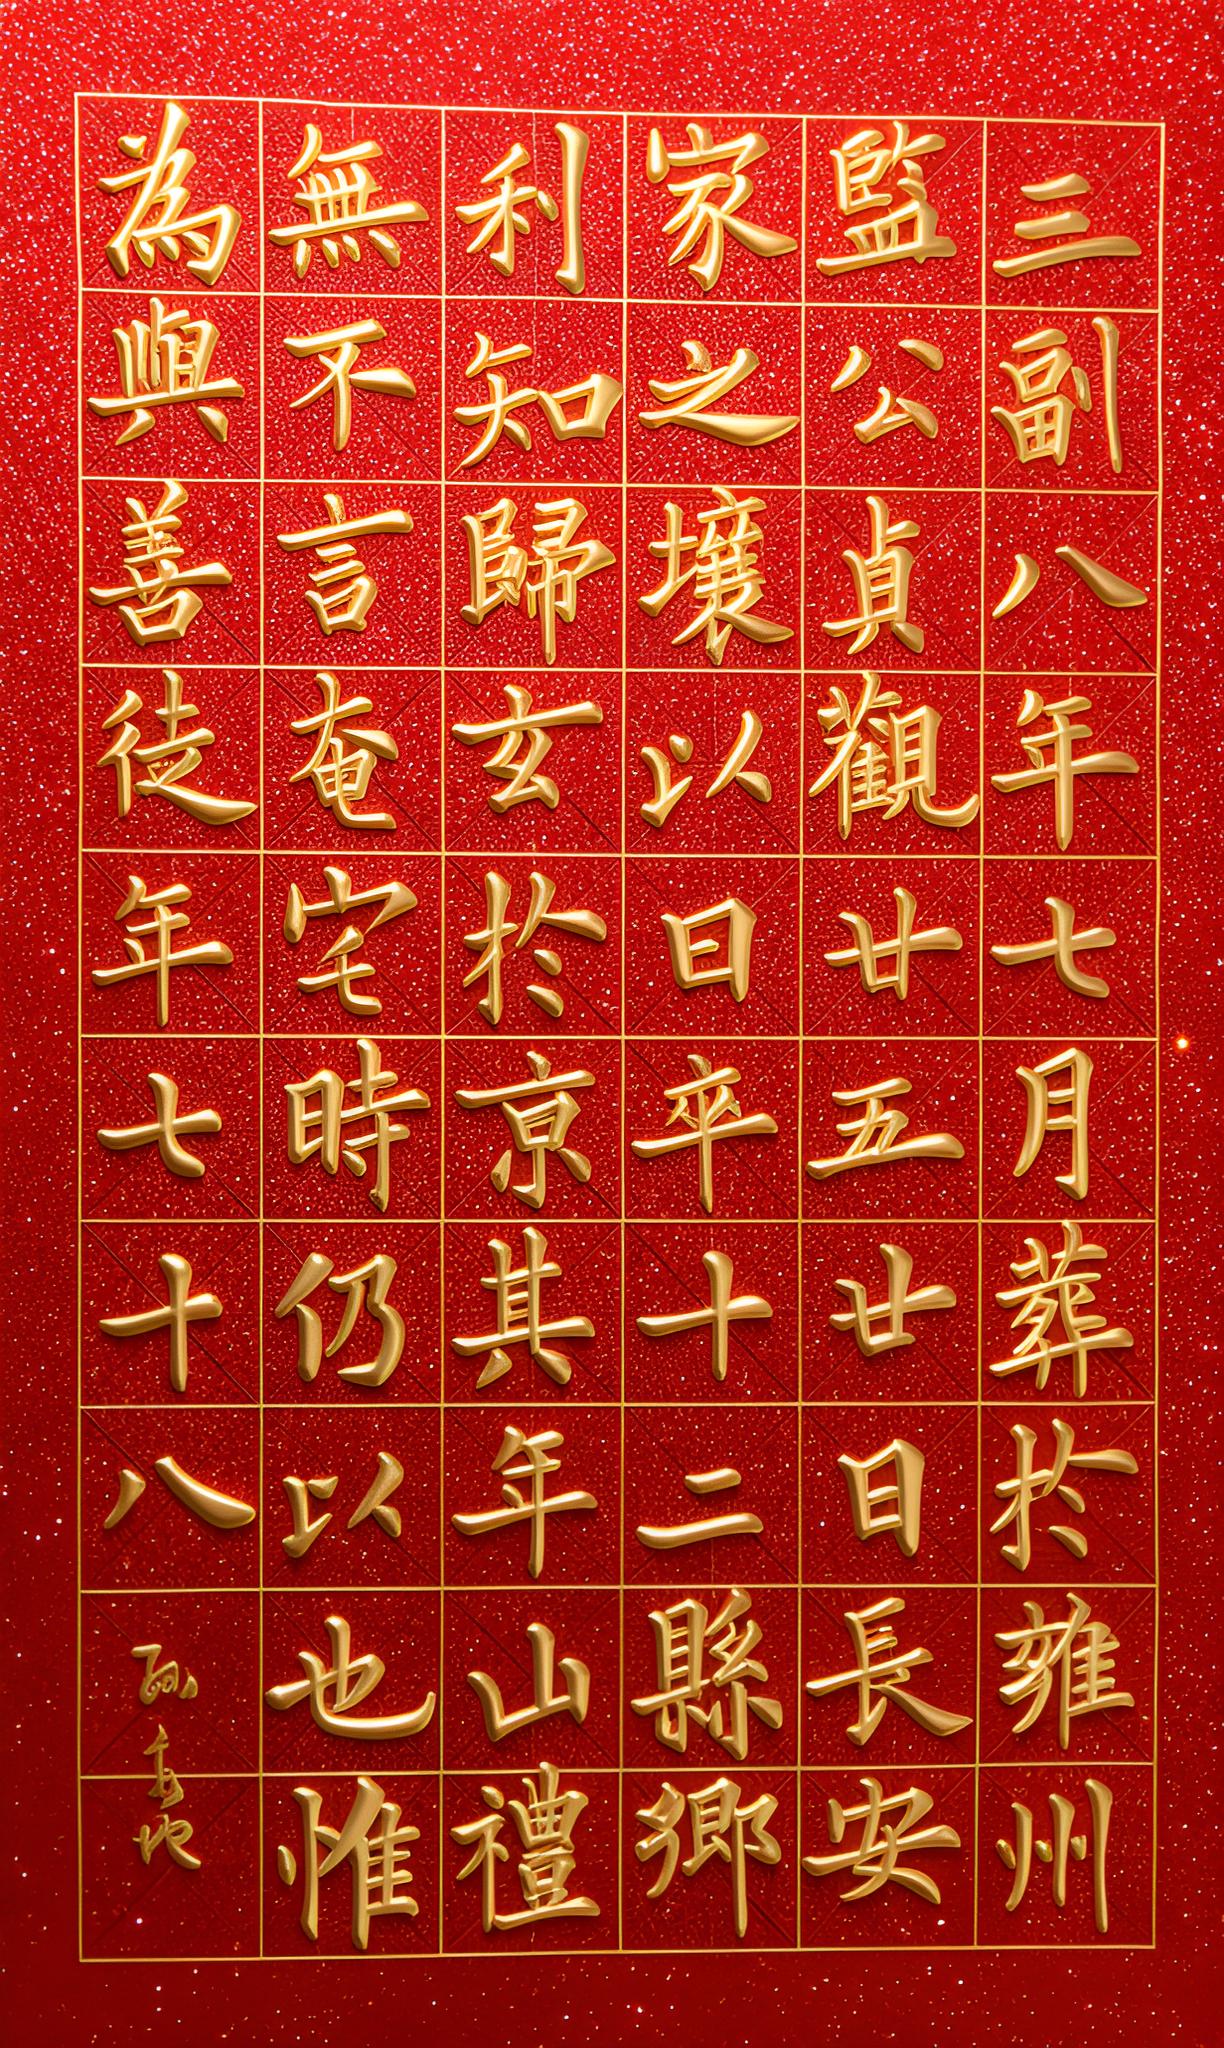 三副八年七月葬於雍州
監公貞觀廿五廿日長安
家之壤以日平十二縣鄉
利知歸玄於京其年山禮
無不言奄宅時仍以也惟
為與善徒年七十八